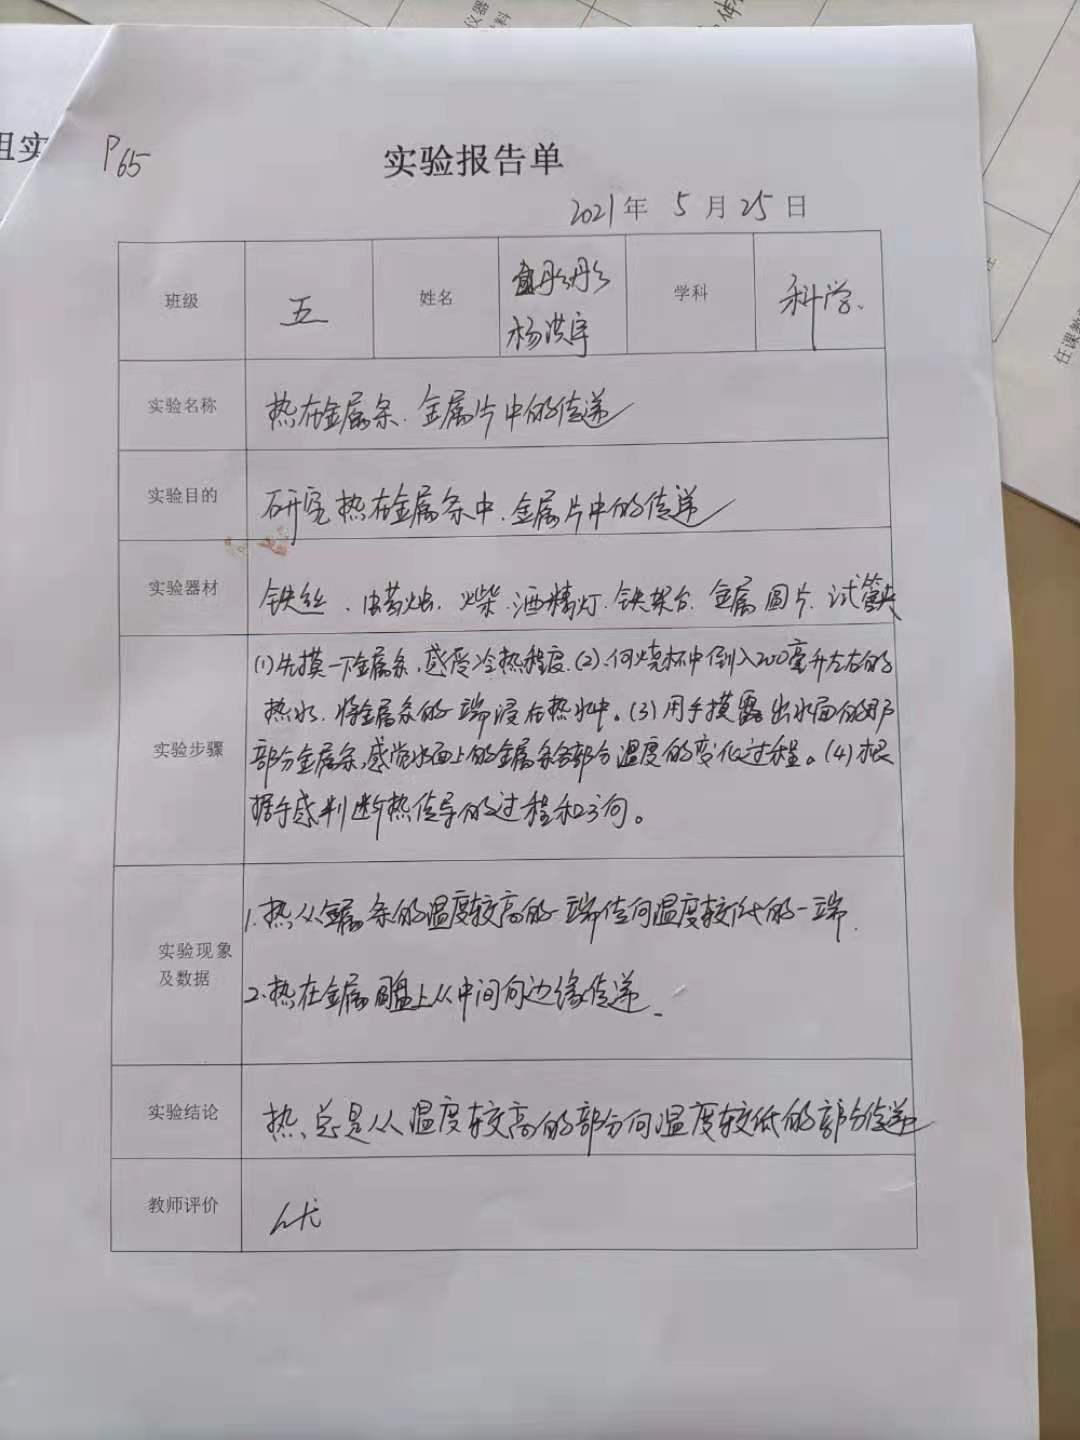 仪器
组实
P65
实验报告单
2021年 5月25日
班级 五 姓名 彤彤 学科 科学.
杨洪宇
任课教
实验名称 热在金属条.金属片中的传递
实验目的 研究热在金属条中.金属片中的传递
实验器材 铁丝、蜡烛.火柴.酒精灯.铁架台.金属圆片.试管夹
实验步骤 (1)先摸一下金属条,感受冷热程度.(2).向烧杯中倒入200毫升左右的
热水,将金属条的一端浸在热水中。(3)用手摸露出水面的那
部分金属条,感觉水面上的金属条各部分温度的变化过程。(4)根
据手感判断热传导的过程和方向。
实验现象及数据 1.热从金属条的温度较高的一端传向温度较低的一端.
2.热在金属圆盘上从中间向边缘传递.
实验结论 热总是从温度较高的部分向温度较低的部分传递
教师评价 优